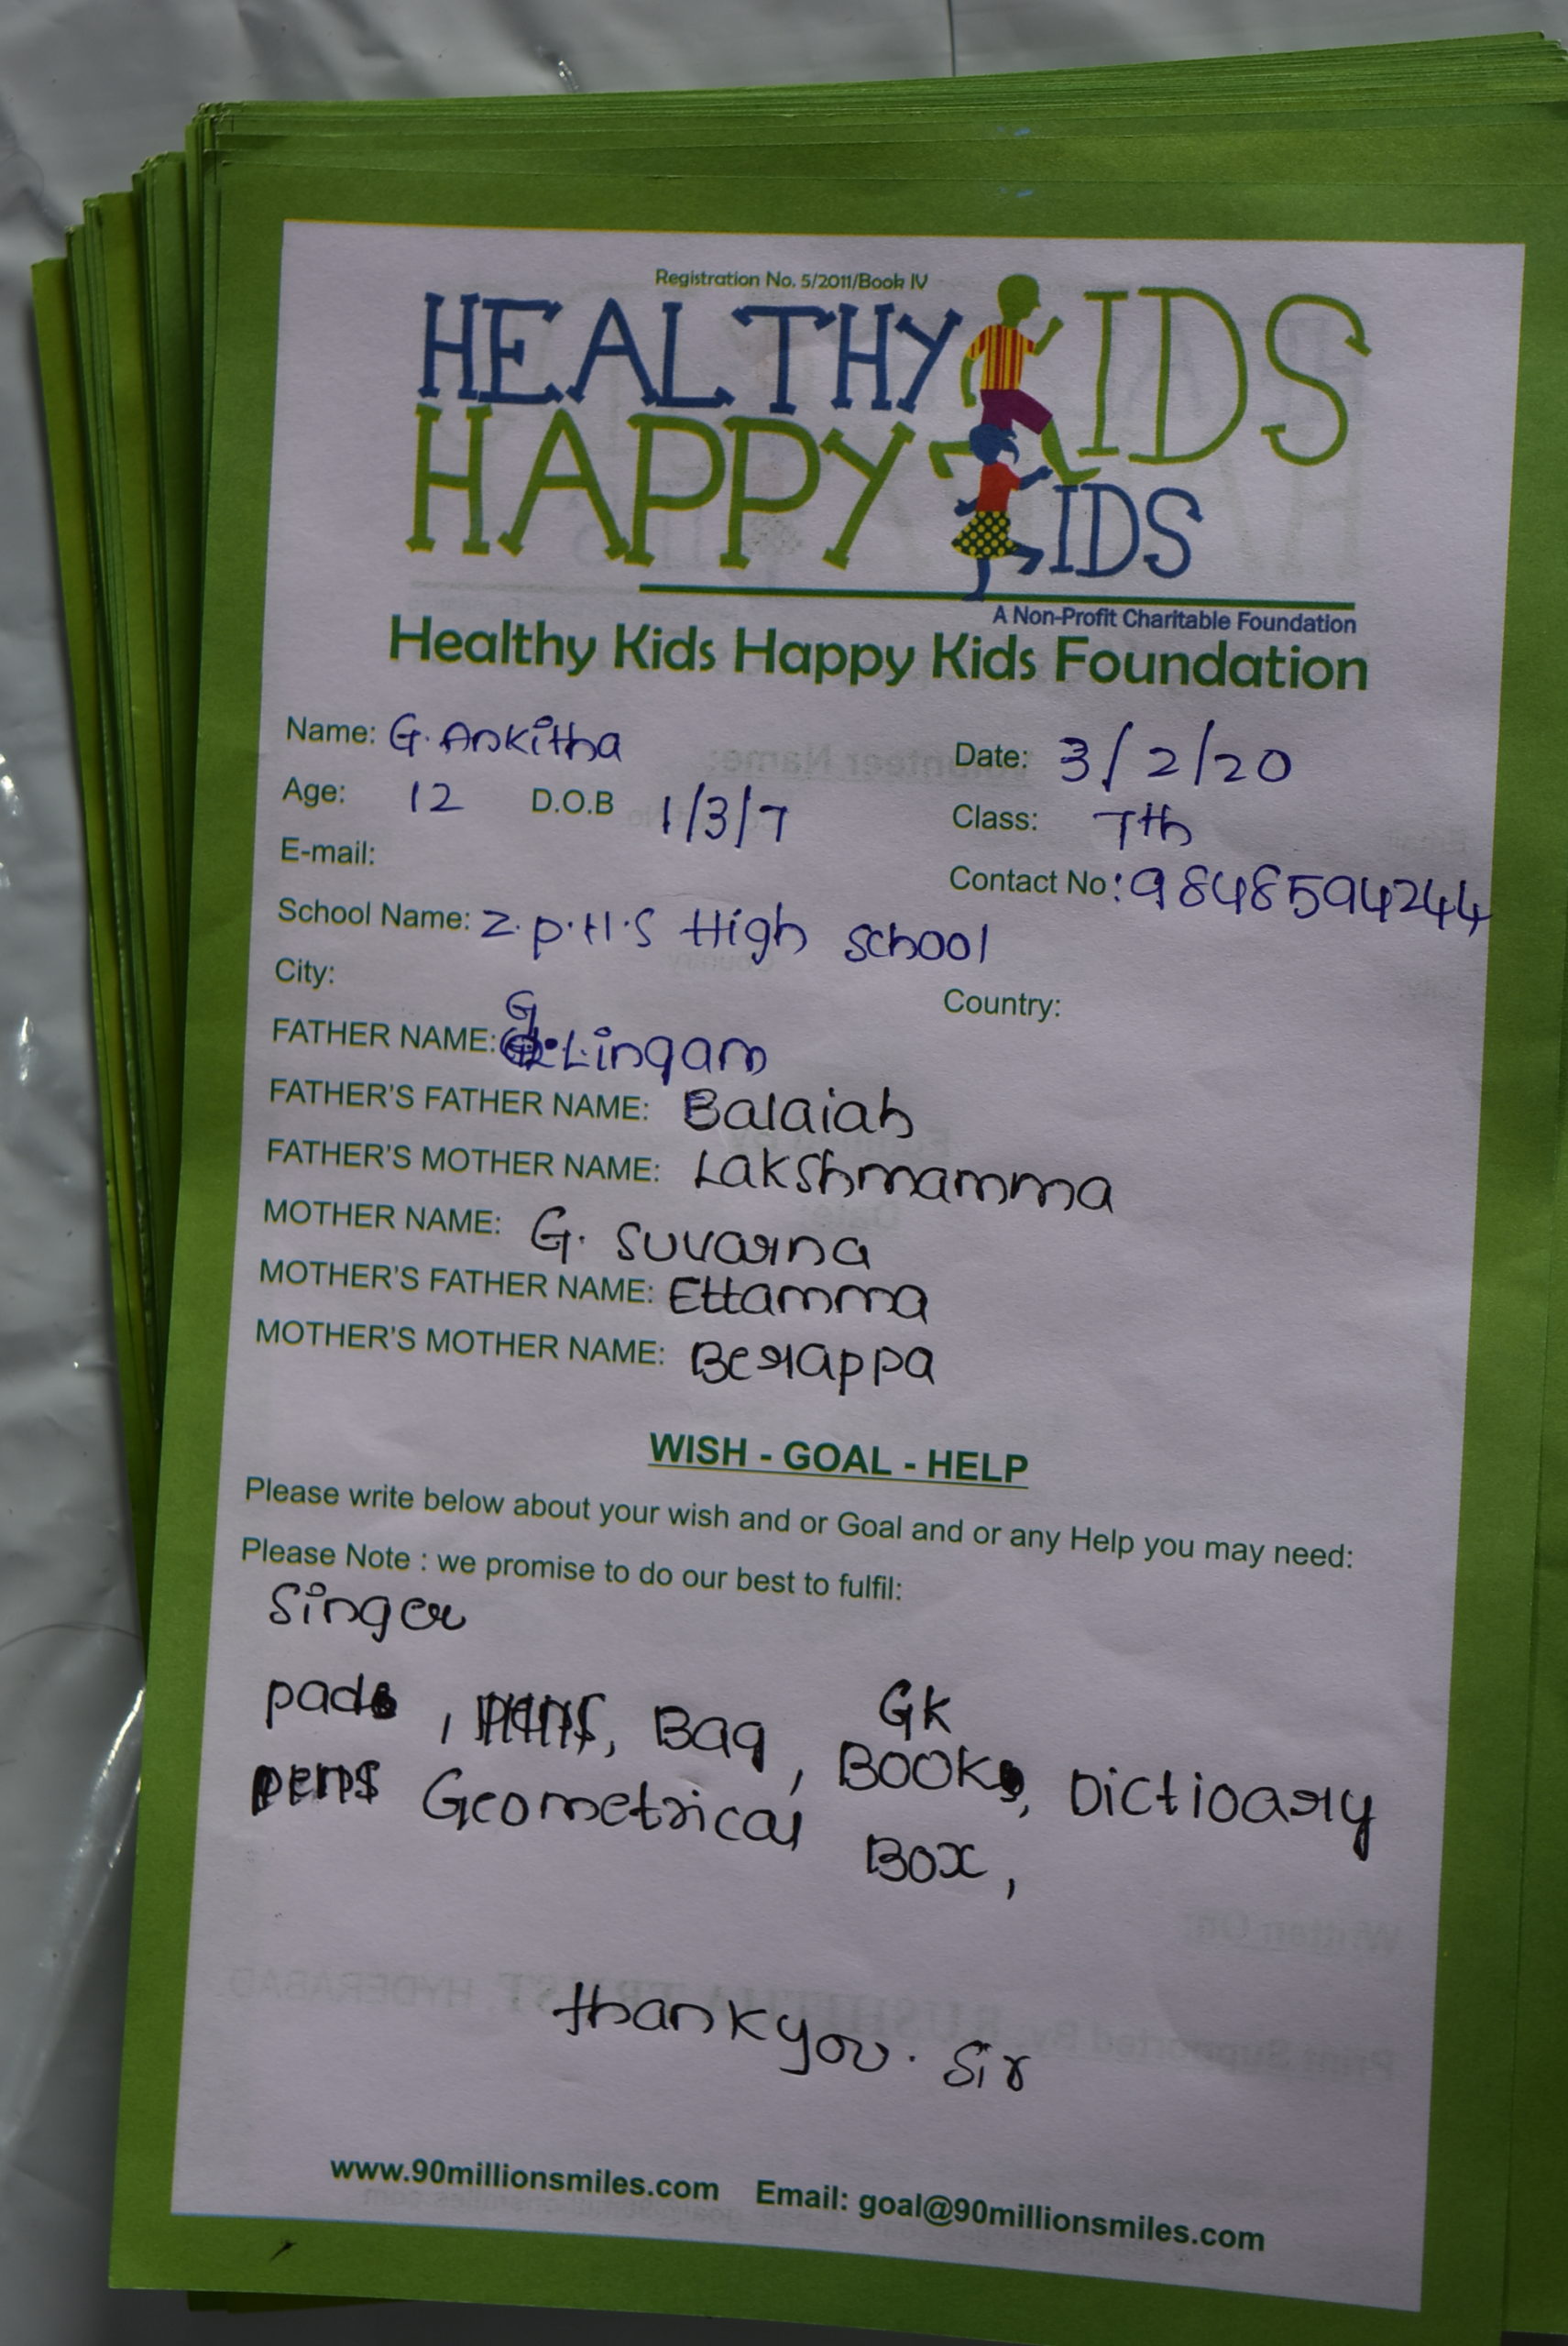 Registration No. 5/2011/Book IV
HEALTHY KIDS
HAPPY KIDS
A Non-Profit Charitable Foundation
Healthy Kids Happy Kids Foundation
Name: G. Ankitha Date: 3/2/20
Age: 12 D.O.B 1/3/7 Class: 7th
E-mail: Contact No: 9848594244
School Name: Z.p.H.S High school
City: Country:
FATHER NAME: G. Lingam
FATHER'S FATHER NAME: Balaiah
FATHER'S MOTHER NAME: Lakshmamma
MOTHER NAME: G. Suvarna
MOTHER'S FATHER NAME: Ettamma
MOTHER'S MOTHER NAME: Berappa
WISH - GOAL - HELP
Please write below about your wish and or Goal and or any Help you may need:
Please Note : we promise to do our best to fulfil:
Singer
pads, Bag, GK Books, Dictioary
pens Geometrical Box,
thankyou. Sir
www.90millionsmiles.com Email: goal@90millionsmiles.com